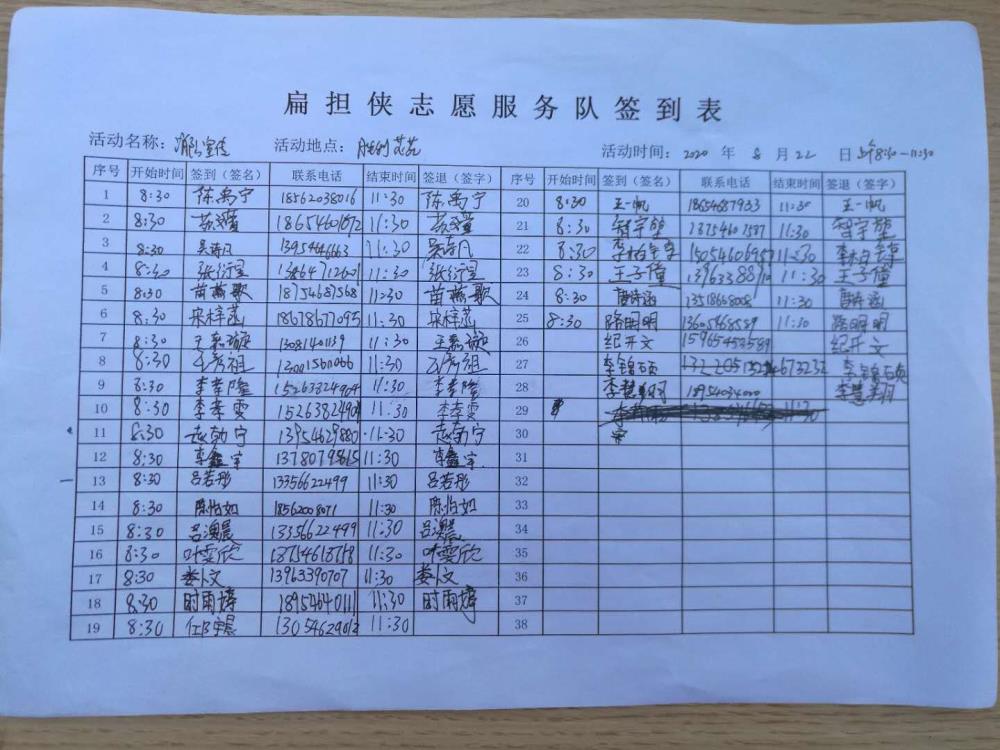 扁担侠志愿服务队签到表
活动名称： 活动地点： 活动时间：2020 年 8 月 22 日 上午8:30—11:30
序号 开始时间 签到（签名） 联系电话 结束时间 签退（签字） 序号 开始时间 签到（签名） 联系电话 结束时间 签退（签字）
1 8:30 陈禹宁 18562038016 11:30 陈禹宁 20 8:30 王一帆 18654687933 11:30 王一帆
2 8:30 11:30 21 8:30 13754601587 11:30
3 8:30 吴诗凡 11:30 吴诗凡 22 8:30 11:30
4 8:30 张衍星 11:30 张衍星 23 8:30 王子僮 11:30 王子僮
5 8:30 苗燕歌 18754687568 11:30 苗燕歌 24 8:30 11:30
6 8:30 宋梓菡 18678677095 11:30 宋梓菡 25 8:30 路明明 13605468589 11:30 路明明
7 8:30 11:30 26 纪开文 15965453589 纪开文
8 8:30 11:30 27 李锦硕 李锦硕
9 8:30 李孝隆 15263824904 11:30 李孝隆 28 李慧翔 18954034000 李慧翔
10 8:30 李孝雯 15263824904 11:30 李孝雯 29
11 8:30 赵勃宁 13954629880 11:30 赵勃宁 30
12 8:30 李鑫宇 13780798615 11:30 李鑫宇 31
13 8:30 吕若彤 13356622499 11:30 吕若彤 32
14 8:30 陈怡如 18562008071 11:30 陈怡如 33
15 8:30 吕澳晨 13356622499 11:30 吕澳晨 34
16 8:30 叶雯欣 11:30 叶雯欣 35
17 8:30 娄卜文 13963390707 11:30 娄卜文 36
18 8:30 时雨婷 18954640111 11:30 时雨婷 37
19 8:30 13054629012 11:30 38